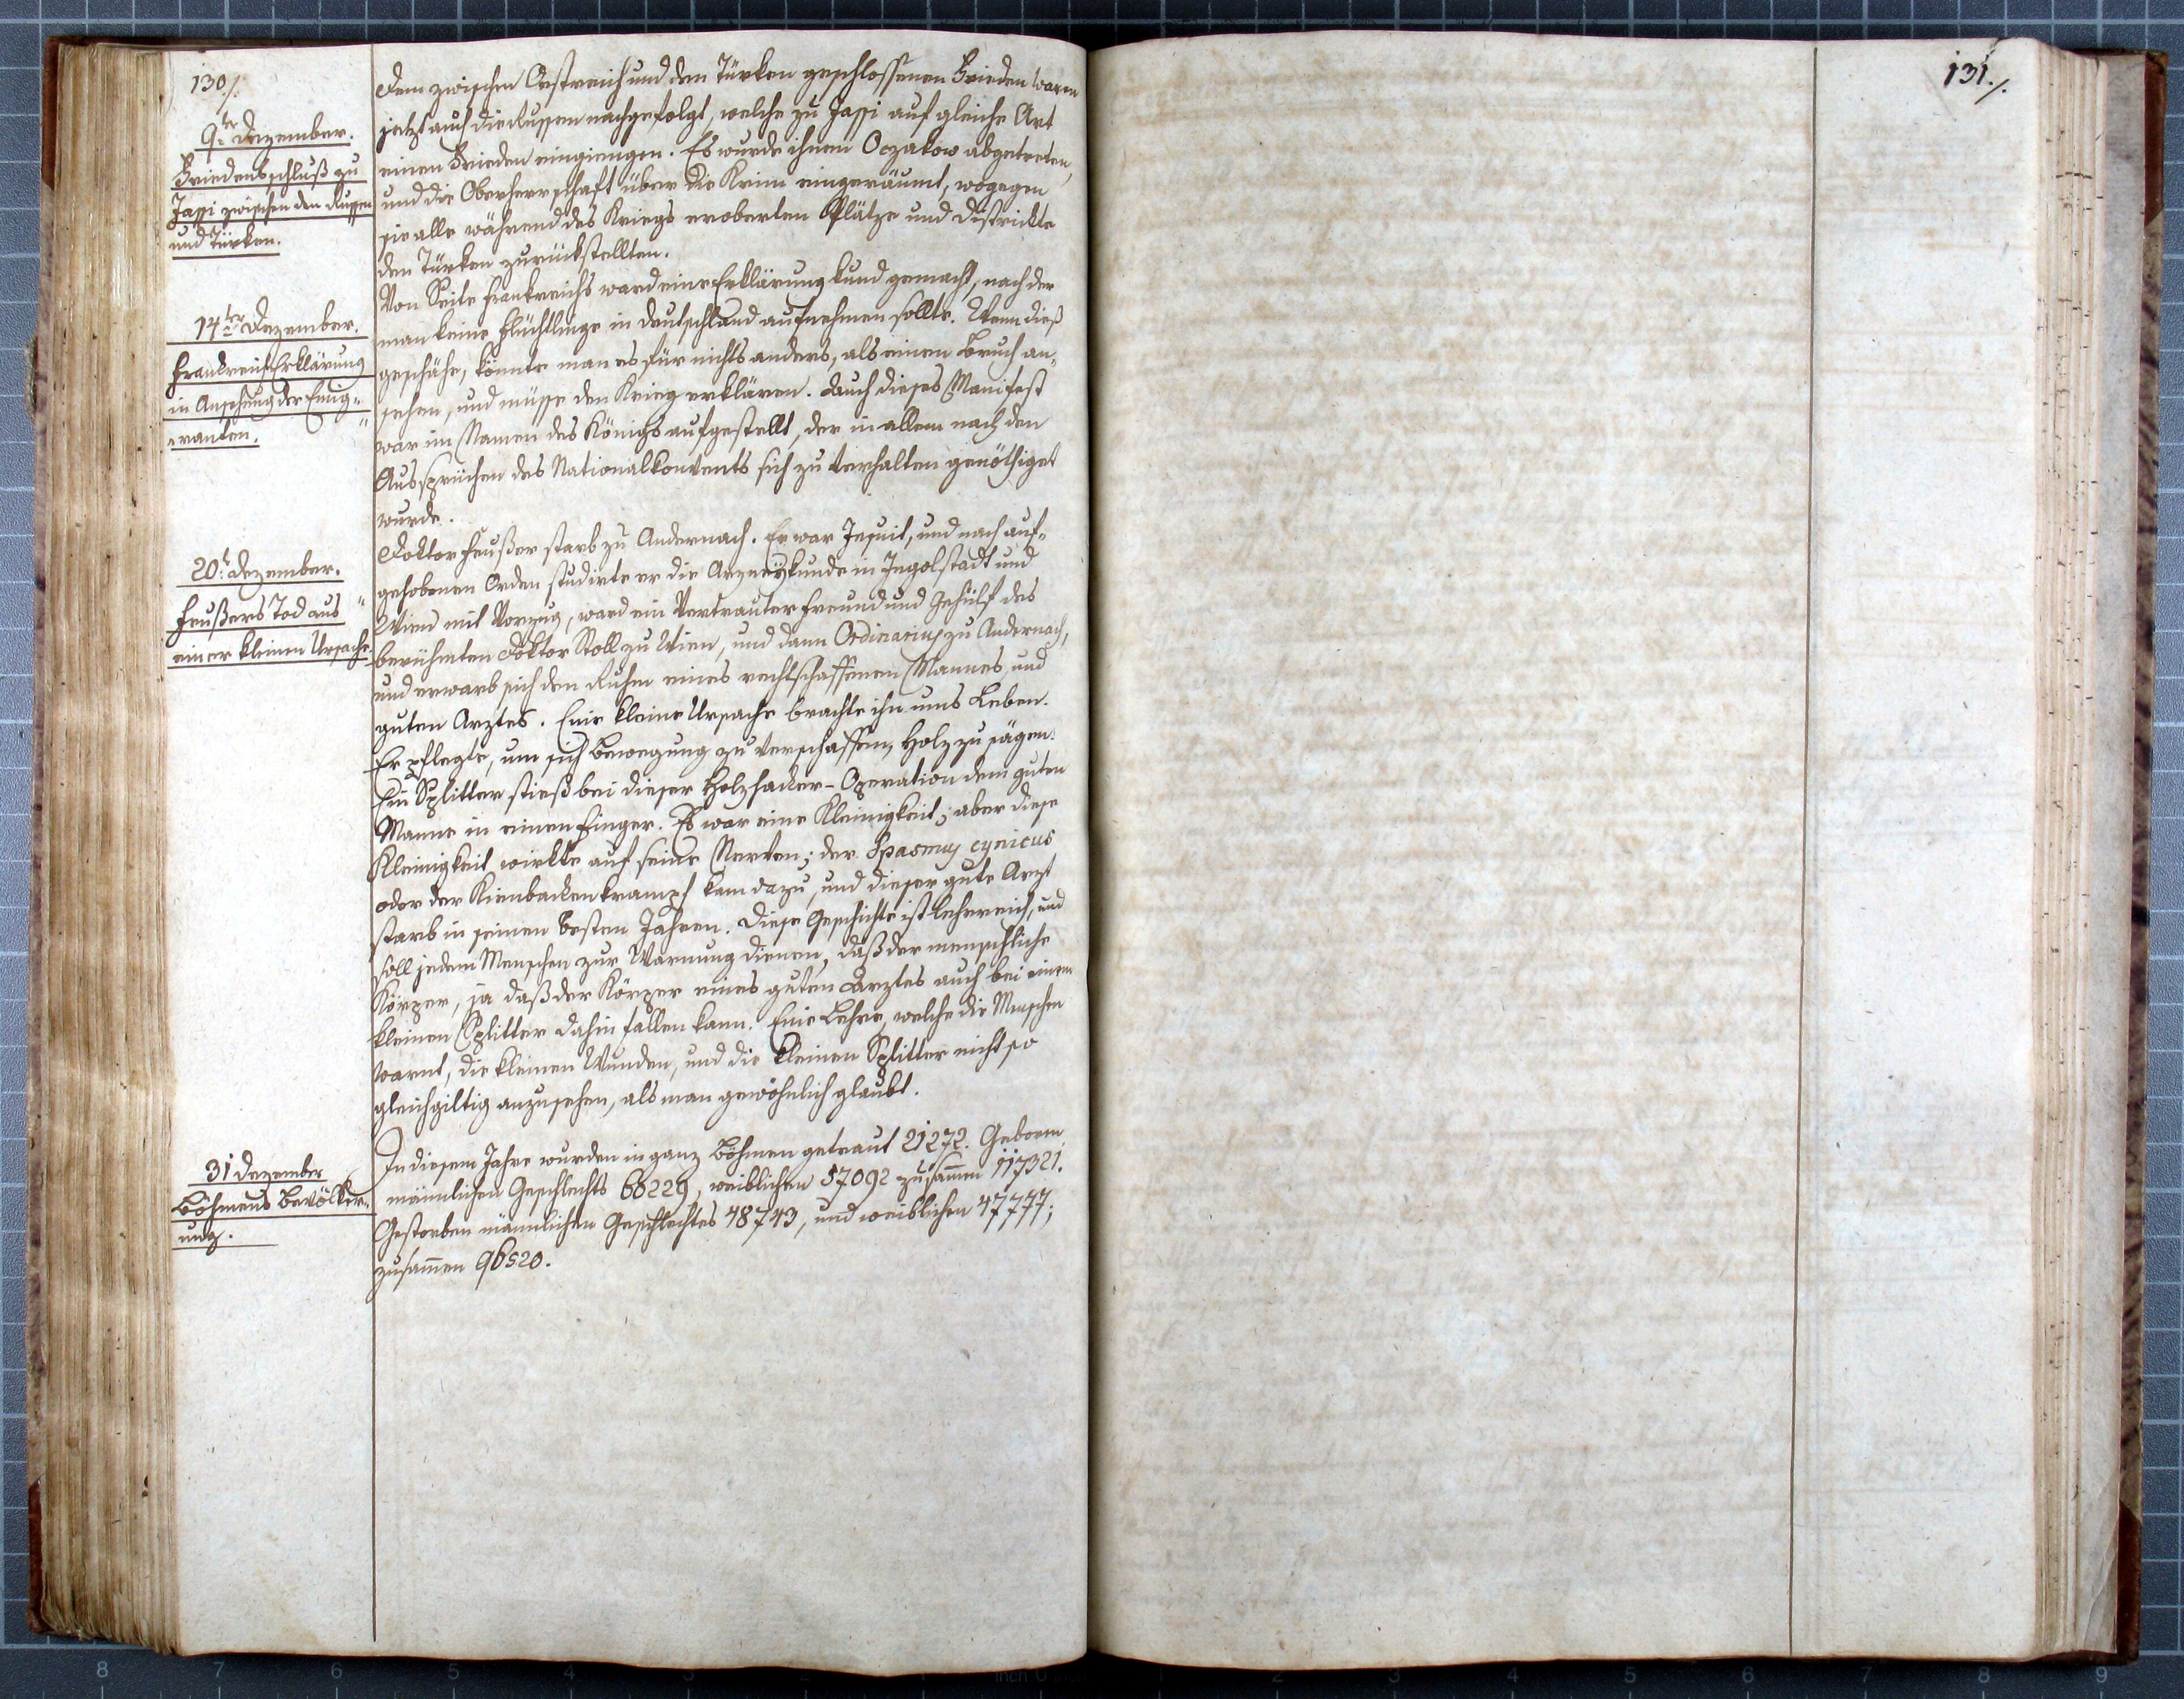 130./.
9.ter Dezember.
Friedensschluß zu
Jassi zwischen den Russen
und Türken.
Dem zwischen Oestreich und den Türken geschlossenen Frieden waren
jetzt auch die Russen nachgefolgt, welche zu Jassi auf gleiche Art
einen Frieden eingiengen. Es wurde ihnen Oczakow abgetreten,
und die Oberherrschaft über die Krim eingeräumt, wogegen
sie alle während des Kriegs eroberten Plätze und Districkte
den Türken zurückstellten.
14ter Dezember.
Frankreichs Erklärung
in Ansehung der Emig„
„ranten.
Von Seite Frankreichs ward eine Erklärung kund gemacht, nach der
man keine Flüchtlinge in Deutschland aufnehmen sollte. Wenn dieß
geschähe, könnte man es für nichts anders, als einen Bruch an„
sehen, und müsse den Krieg erklären. Auch dieses Manifest
war im Namen des Königs aufgestellt, der in allem nach den
Aussprüchen des Nationalkonvents sich zu verhalten genöthiget
wurde.
20t Dezember.
Feußers Tod aus
einer kleinen Ursache.
Doktor Feußer starb zu Andernach. Er war Jesuit, und nach auf„
gehobenen Orden studirte er die Arzneykunde in Ingolstadt und
Wien mit Vorzug, ward ein Vertrauter Freund und Gehülf des
berühmten Doktor Stoll zu Wien, und dann Ordinarius zu Andernach,
und erwarb sich den Ruhm eines rechtschaffenen Mannes, und
guten Arztes. Eine kleine Ursache brachte ihn ums Leben.
Er pflegte, um sich Bewegung zu verschaffen, Holz zu sägen.
Ein Splitter stieß bei dieser Holzhacker-Operation dem guten
Manne in einen Finger. Es war eine Kleinigkeit; aber diese
Kleinigkeit wirkte auf seine Nerven; der Spasmus cynicus
oder der Kienbackenkrampf kam dazu, und dieser gute Arzt
starb in seinen besten Jahren. Diese Geschichte ist lehrreich, und
soll jedem Menschen zur Warnung dienen, daß der menschliche
Körper, ja daß der Körper eines guten Arztes auch bei einem
kleinen Splitter dahin fallen kann. Eine Lehre, welche die Menschen
warnt, die kleinen Wunden, und die kleinen Splitter nicht so
gleichgiltig anzusehen, als man gewöhnlich glaubt.
31 Dezember
Böhmens Bevölker„
ung.
In diesem Jahre wurden in ganz Böhmen getraut 21272. Geboren
männlichen Geschlechts 60229, weiblichen 57092 zusam̄en 117321.
Gestorben männlichen Geschlechtes 48743, und weiblichen 47777;
zusam̄en 96520.
131./.